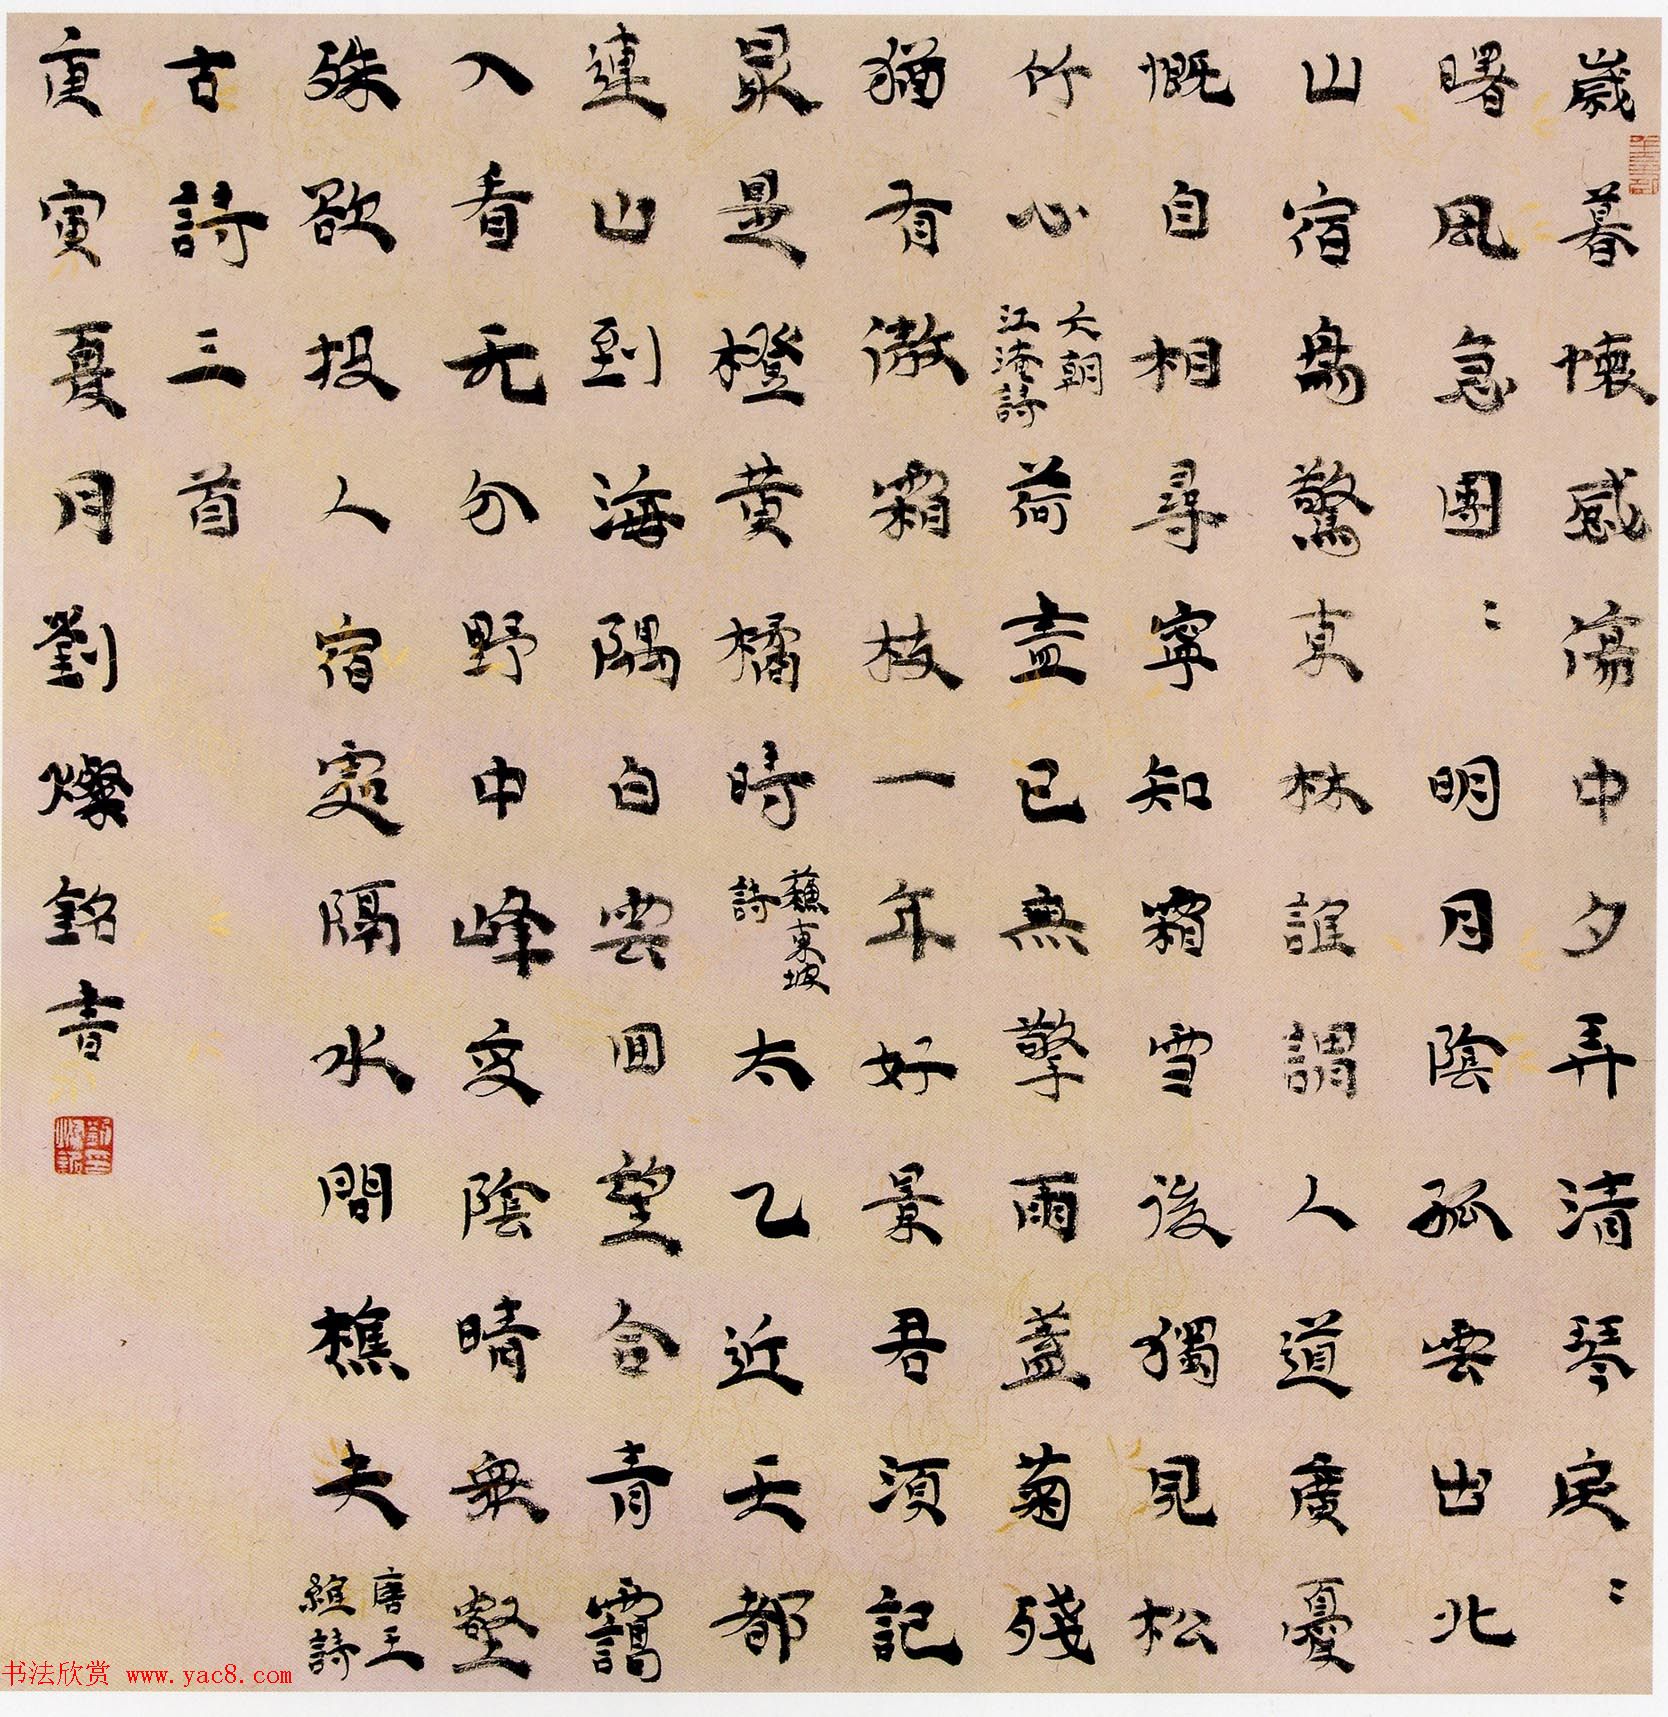 歲暮懷感傷中夕弄清琴戾〻
曙風急團〻明月陰孤雲出北
山宿鳥驚東林誰謂人道廣憂
慨自相尋寧知霜雪後獨見松
竹心六朝江淹詩荷盡已無擎雨蓋菊殘
猶有傲霜枝一年好景君須記
最是橙黄橘時蘇東坡詩太乙近天都
連山到海隅白雲回望合青靄
入看无分野中峰变陰晴衆壑
殊欲投人宿處隔水間樵夫唐王維詩
古詩三首
庚寅夏月劉燦銘書
劉印燦銘
书法欣赏 www.yac8.com